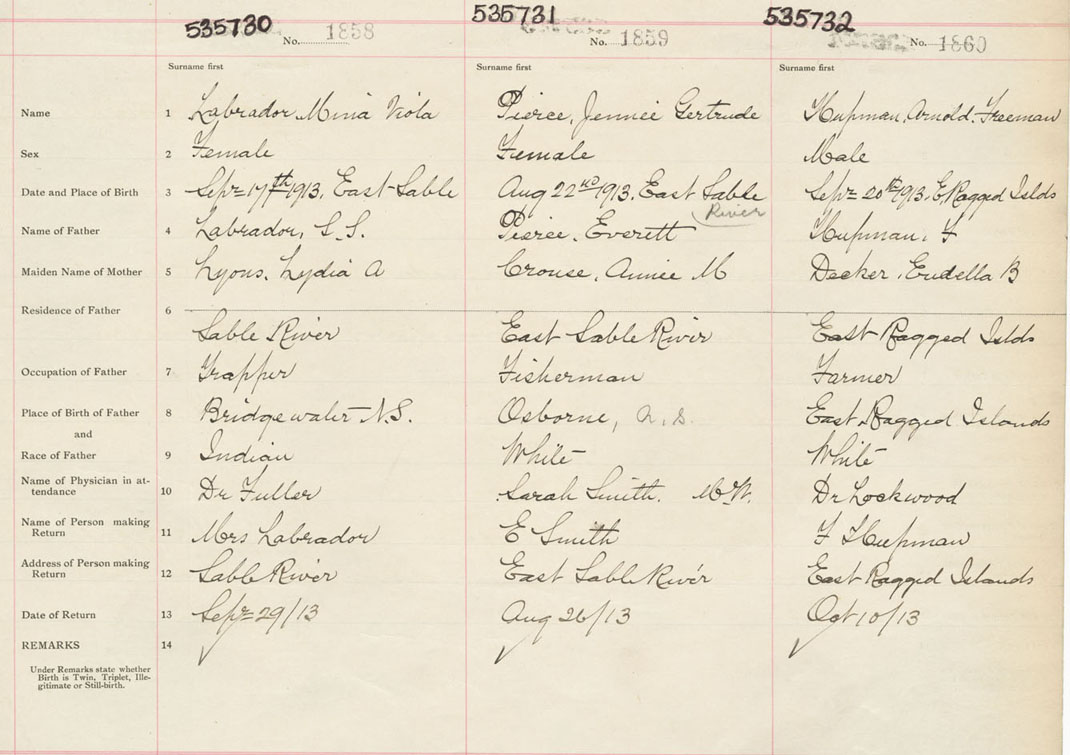 535730 535731 535732
No. 1858 No. 1859 No. 1860
Surname first Surname first Surname first
Name 1 Labrador, Mina Viola Pierce, Jennie Gertrude Hupman, Arnold. Freeman
Sex 2 Female Female Male
Date and Place of Birth 3 Sept 17th 1913, East Sable Aug 22nd 1913. East Sable Sept 20th 1913. E. Ragged Islds
River
Name of Father 4 Labrador, S.S. Pierce, Everett Hupman, F
Maiden Name of Mother 5 Lyons, Lydia A Crouse, Annie M Decker, Eudella B
Residence of Father 6
Sable River East Sable River East Ragged Islds
Occupation of Father 7 Trapper Fisherman Farmer
Place of Birth of Father 8 Bridgewater N.S. Osborne, N.S. East Ragged Islands
and
Race of Father 9 Indian White White
Name of Physician in at-
tendance 10 Dr Fuller Sarah Smith. M.W. Dr Lockwood
Name of Person making
Return 11 Mrs Labrador E Smith F Hupman
Address of Person making
Return 12 Sable River East Sable River East Ragged Islands
Date of Return 13 Sept 29/13 Aug 26/13 Oct 10/13
REMARKS 14
Under Remarks state whether
Birth is Twin, Triplet, Ille-
gitimate or Still-birth.